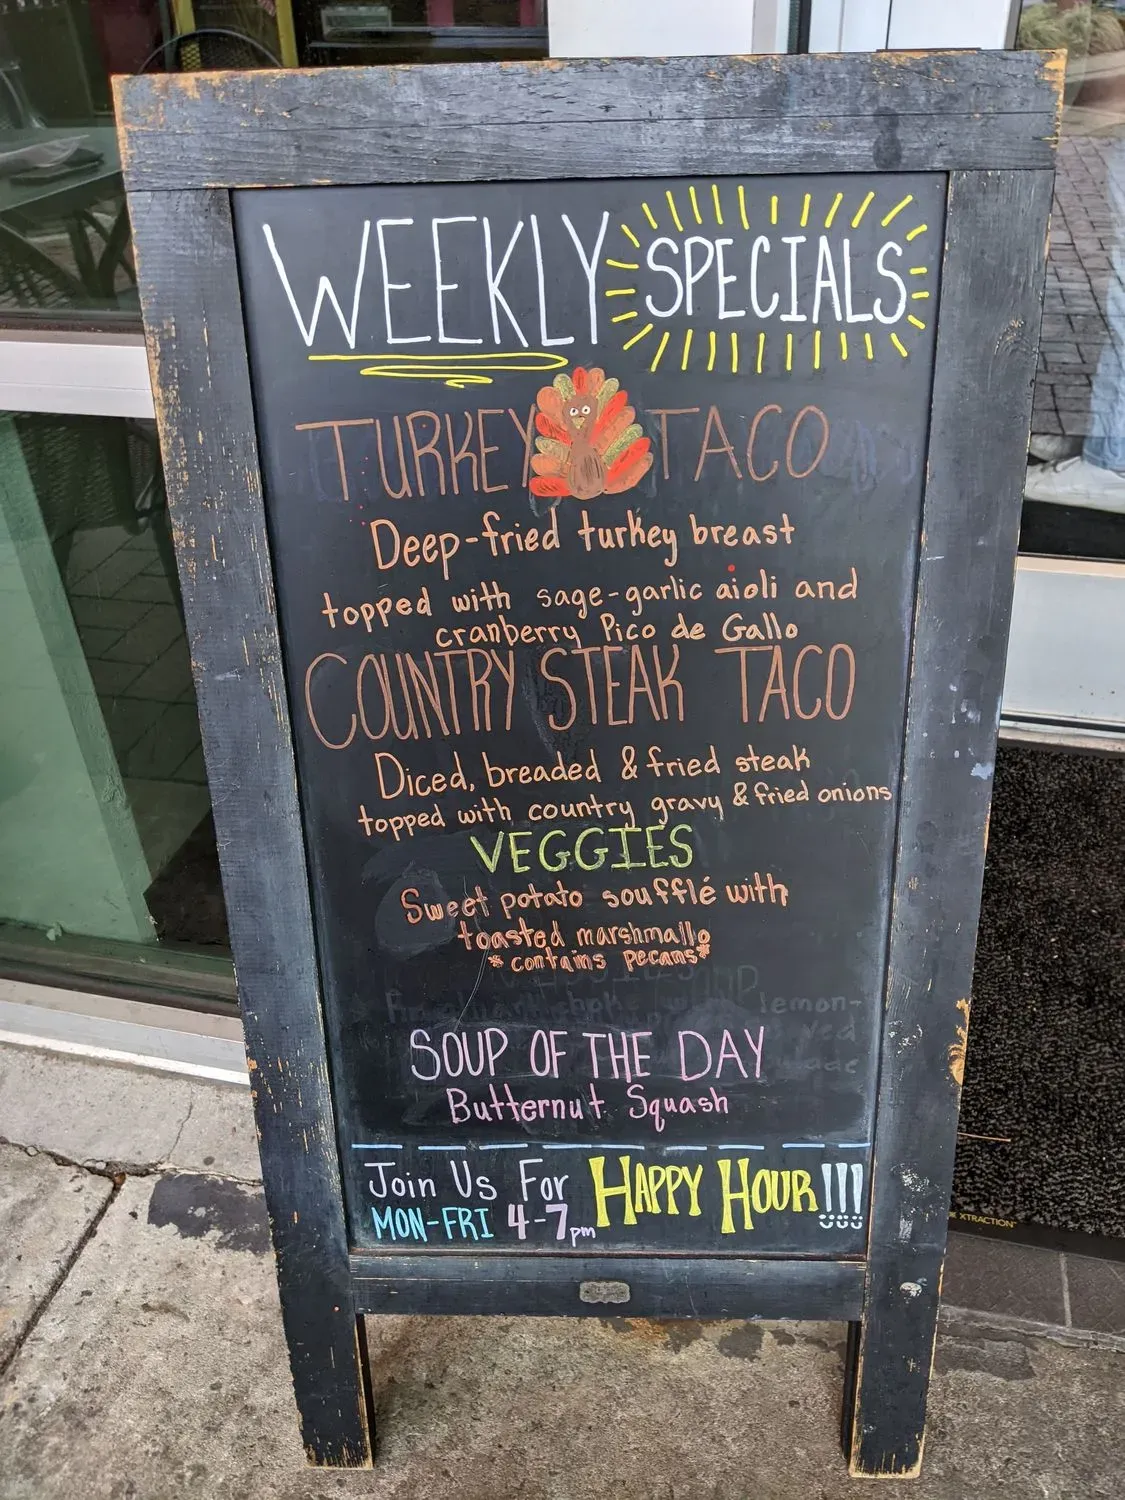 WEEKLY SPECIALS
TURKEY TACO
Deep-fried turkey breast
topped with sage-garlic aioli and
cranberry Pico de Gallo
COUNTRY STEAK TACO
Diced, breaded & fried steak
topped with country gravy & fried onions
VEGGIES
Sweet potato soufflé with
toasted marshmallo
*contains pecans*
lemon-
SOUP OF THE DAY
Butternut Squash
Join Us For HAPPY HOUR!!!
MON-FRI 4-7pm
XTRACTION